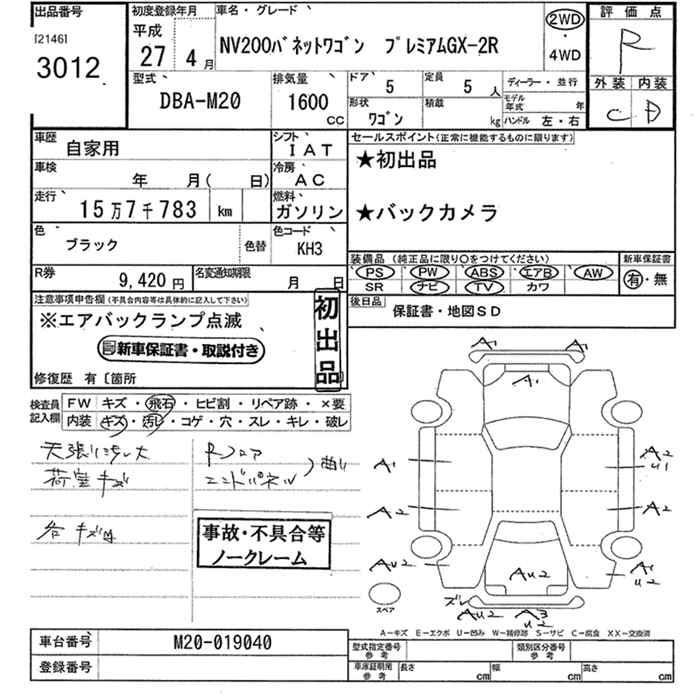 出品番号
[2146]
3012
初度登録年月
平成
27 4月
車名・グレード
NV200バネットワゴン プレミアムGX-2R
2WD
・
4WD
評価点
R
外装 内装
C D
型式
DBA-M20
排気量
1600
CC
ドア
5
定員
5人
形状
ワゴン
積載
kg
ディーラー・並行
モデル年式 年
ハンドル 左・右
車歴
自家用
シフト
IAT
車検
年 月( 日)
冷房
AC
走行
15万7千783 km
燃料
ガソリン
色
ブラック
色替
色コード
KH3
R券
9,420円
名変通知期限
月 日
セールスポイント(正常に機能するものに限ります)
★初出品
★バックカメラ
装備品(純正品に限り○をつけてください)
PS PW ABS エアB AW
SR ナビ TV カワ
新車保証書
有・無
後日品
保証書・地図SD
注意事項申告欄(不具合内容等は具体的に記入して下さい)
※エアバックランプ点滅
新車保証書・取説付き
初出品
修復歴 有〔箇所
検査員記入欄
FW キズ・飛石・ヒビ割・リペア跡・×要
内装 キズ・汚レ・コゲ・穴・スレ・キレ・破レ
荷室キズ
Rフロア
エンドパネル
事故・不具合等
ノークレーム
A1 A1
A1
A1 A2
U1
A2 A2
AU2 AU2 A1
U2
スペア
ズレ
AU2 A3
U2
A-キズ E-エクボ U-凹み W-補修跡 S-サビ C-腐食 XX-交換済
車台番号
M20-019040
登録番号
型式指定番号
参考
類別区分番号
参考
車庫証明用
参考
長さ cm
幅 cm
高さ cm